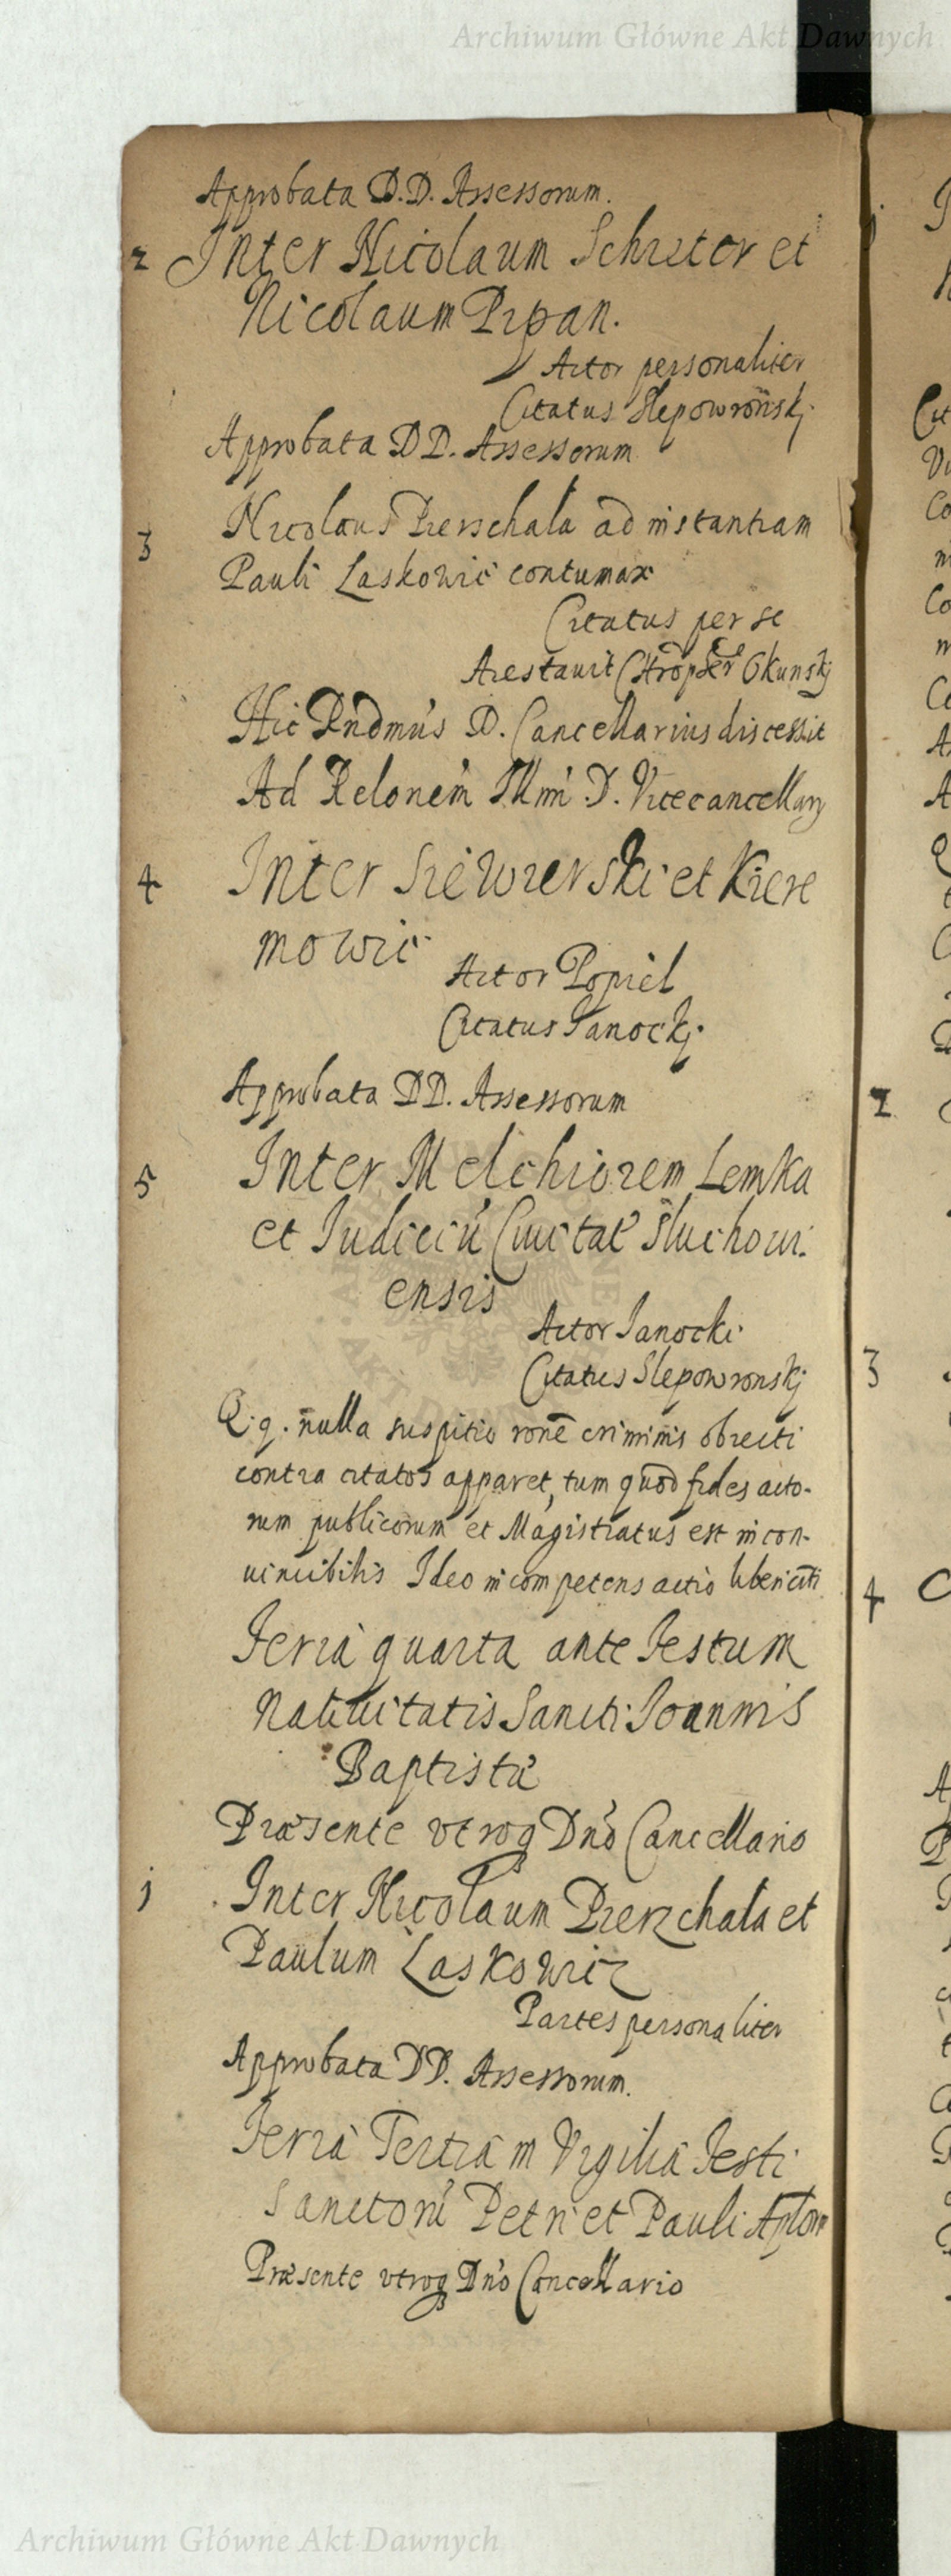 Archiwum Główne Akt Dawnych
Approbata D.D. Assessorum.
2 Inter Nicolaum Schreter et
Nicolaum Pipan.
Actor personaliter
Citatus Slepowroñskj.
Approbata DD. Assessorum
3 Nicolaus Pierschala ad instantiam
Pauli Laskowic contumax
Citatus per se
Arestavit Okunskj
Hic Rndmus D. Cancellarius discessit
Ad Relonem Illmi D. Vicecancellarij
4 Inter Siewierski et Kiere
mowic
Actor Popiel
Citatus Sanockj.
Approbata DD. Assessorum
5 Inter Melchiorem Lemka
et Judiciu Civitat Sluchovi.
ensis
Actor Sanocki
Citatus Slepowronskj
Q.q. nulla suspitio rone criminis obiecti
contra citatos apparet, tum quod fides acto-
rum publicorum et Magistratus est incon-
vincibilis Ideo incompetens actio
Feria quarta ante Festum
Nativitatis Sancti Joannis
Baptistæ
Præsente utroq Dno Cancellario
1 Inter Nicolaum Pierzchala et
Paulum Laskowic
Partes personaliter
Approbata DD. Assessorum.
Feria Tertia in Vigilia Festi
Sanctoru Petri et Pauli Aplorum
Præsente utroq Dno Cancellario
2
3
4
Archiwum Główne Akt Dawnych